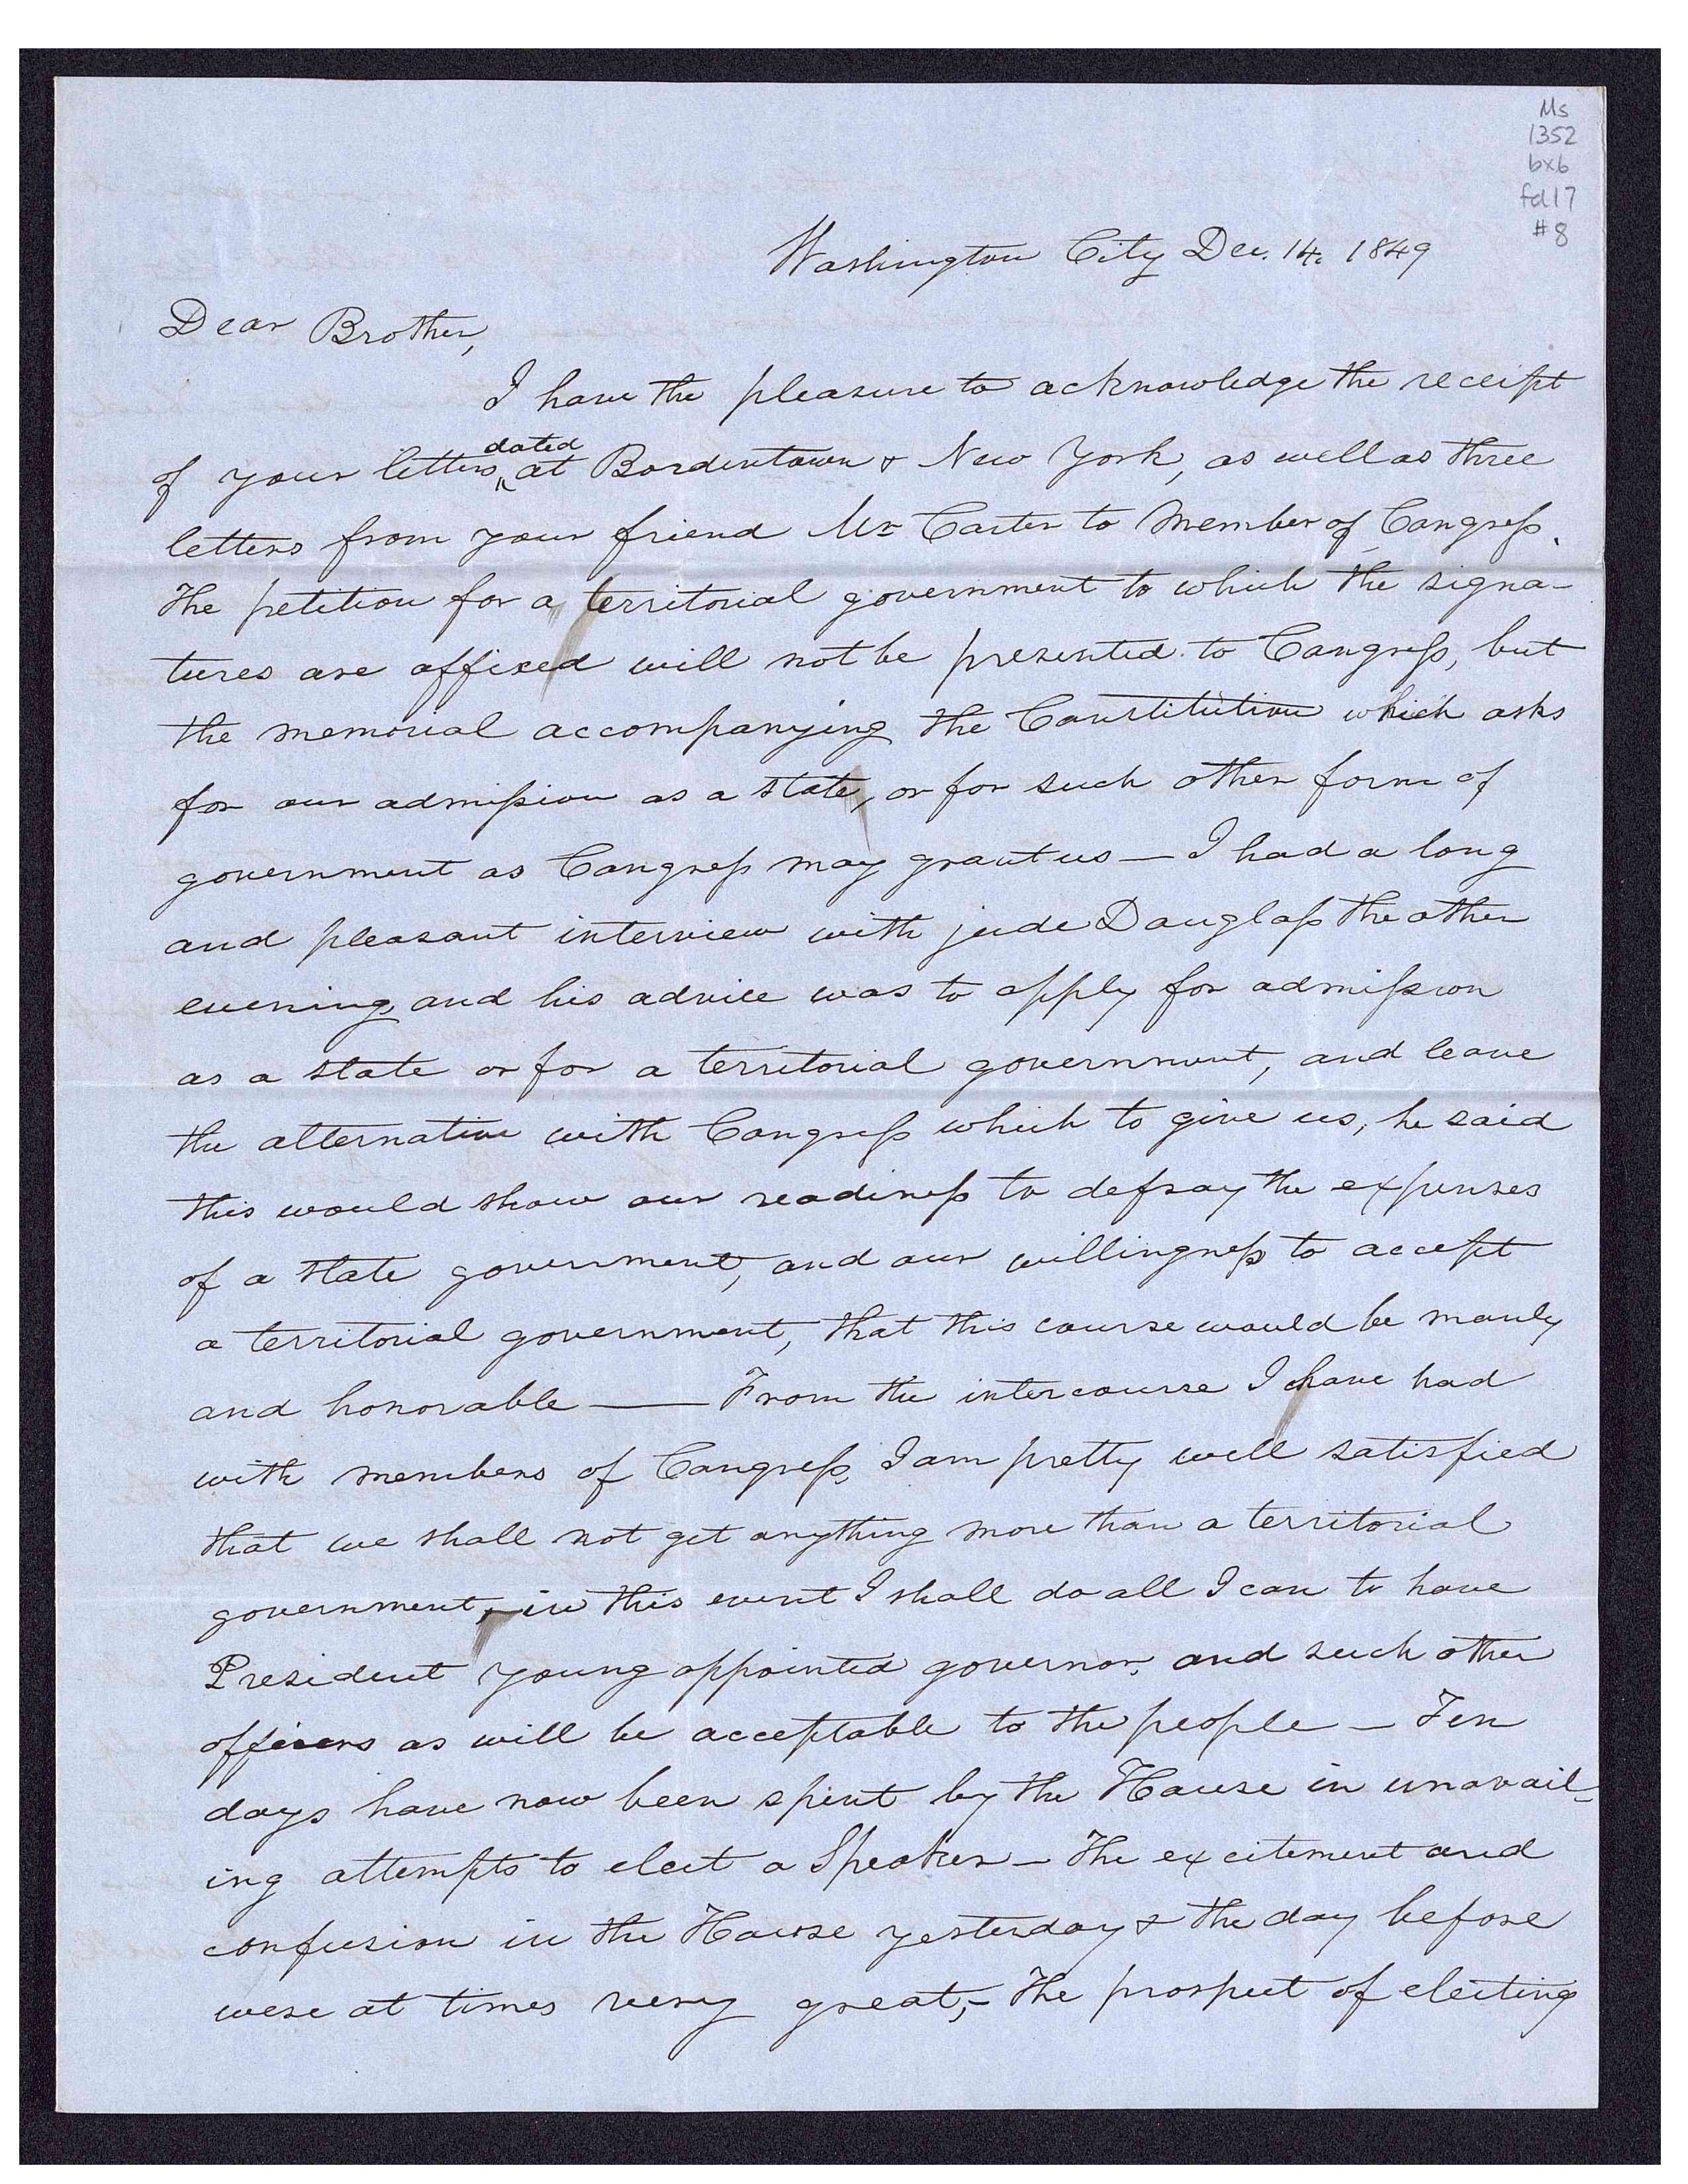 Ms
1352
bx6
fd17
#8
Washington City Dec. 14. 1849
Dear Brother,
I have the pleasure to acknowledge the receipt
dated
of your letters, at Bordentown & New York, as well as three
letters from your friend Mr Carter to Member of Congress.
The petition for a territorial government to which the signa-
tures are affixed will not be presented to Congress, but
the memorial accompanying the Constitution which asks
for our admission as a state, or for such other form of
government as Congress may grant us — I had a long
and pleasant interview with jude Douglass the other
evening, and his advice was to apply for admission
as a state or for a territorial government, and leave
the alternative with Congress which to give us, he said
this would show our readiness to defray the expenses
of a state government, and our willingness to accept
a territorial government, that this course would be manly
and honorable —— From the intercourse I have had
with members of Congress, I am pretty well satisfied
that we shall not get anything more than a territorial
government, in this event I shall do all I can to have
President Young appointed governor, and such other
officers as will be acceptable to the people — Ten
days have now been spent by the House in unavail-
ing attempts to elect a Speaker — The excitement and
confusion in the House yesterday & the day before
were at times very great, - The prospect of electing